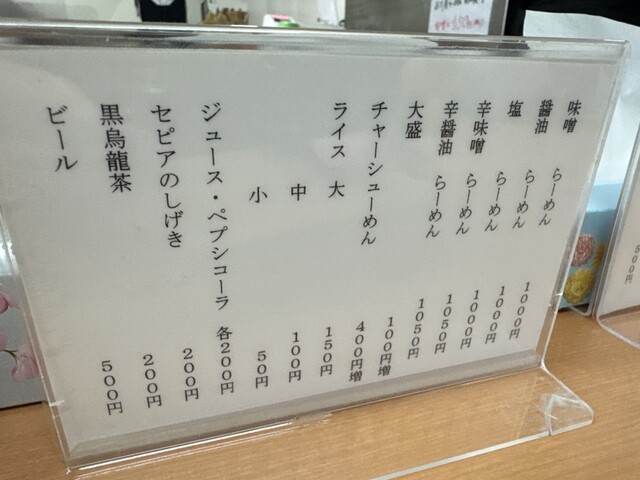 味噌 らーめん 1000円
醤油 らーめん 1000円
塩 らーめん 1000円
辛味噌 らーめん 1050円
辛醤油 らーめん 1050円
大盛 100円増
チャーシューめん 400円増
ライス 大 150円
中 100円
小 50円
ジュース・ペプシコーラ 各200円
セピアのしげき 200円
黒烏龍茶 200円
ビール 500円
500円